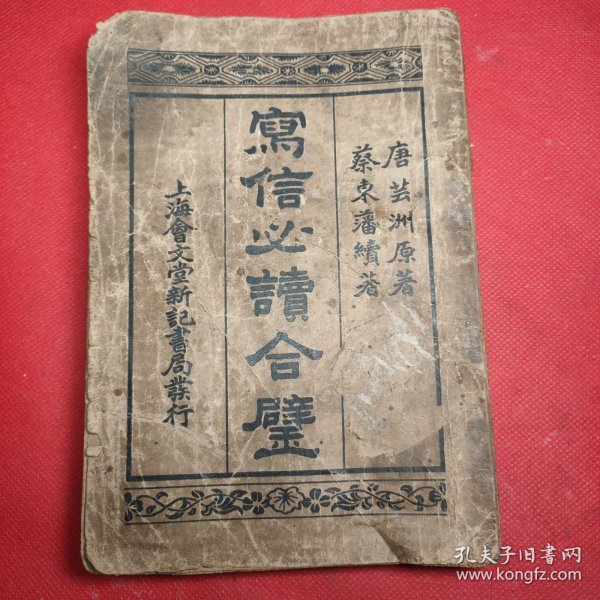 唐芸洲原著
蔡東藩續著
寫信必讀合璧
上海會文堂新記書局發行
孔夫子旧书网
www.kongfz.com